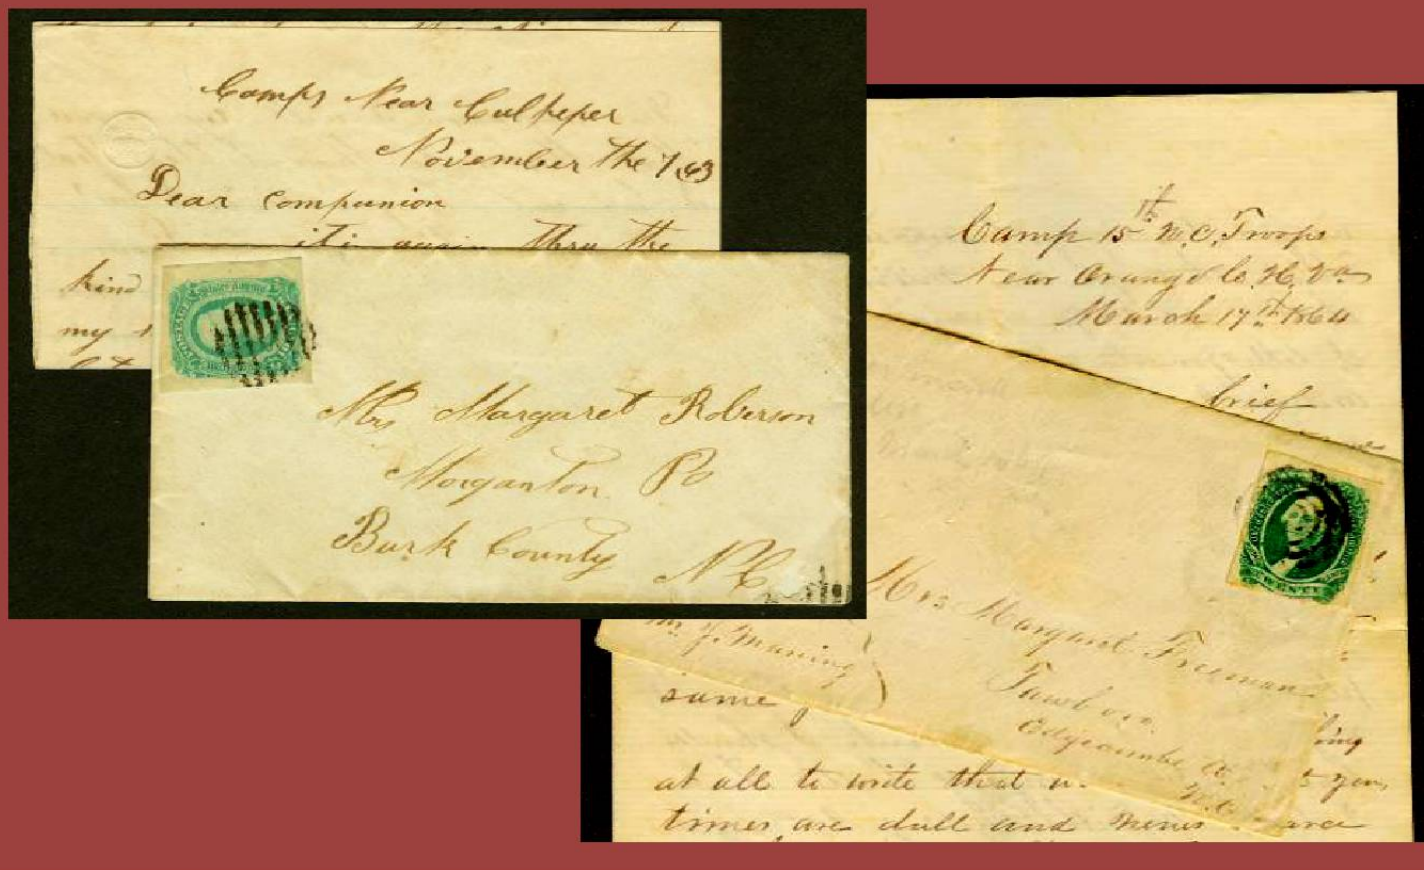 Camp Near Culpeper
November the 7 63
Dear companion
it is again thru the
kind
my
Mrs Margaret Roberson
Morganton PO
Burk County
N C
Camp 15th N.C. Troops
Near Orange C. H. Va
March 17th 1864
brief
Mrs Margaret Freeman
Tawboro
Edgecombe Co
N.C.
same
at all to write that
times are dull and news